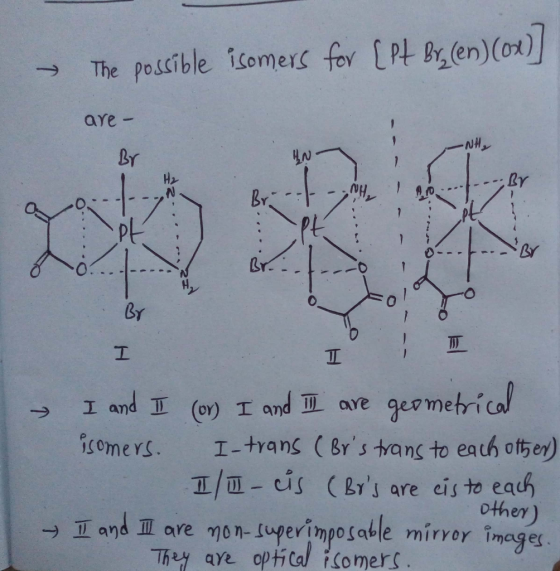 → The possible isomers for [Pt Br₂(en)(ox)]
are -
Br
H₂
N
O
O
Pt
O
O
N
H₂
Br
I
H₂N
Br
NH₂
Pt
Br
O
O
O
O
II
NH₂
Br
Pt
O
Br
O
O
O
III
→ I and II (or) I and III are geometrical
isomers. I-trans (Br's trans to each other)
II/III - cis (Br's are cis to each
other)
→ II and III are non-superimposable mirror images.
They are optical isomers.